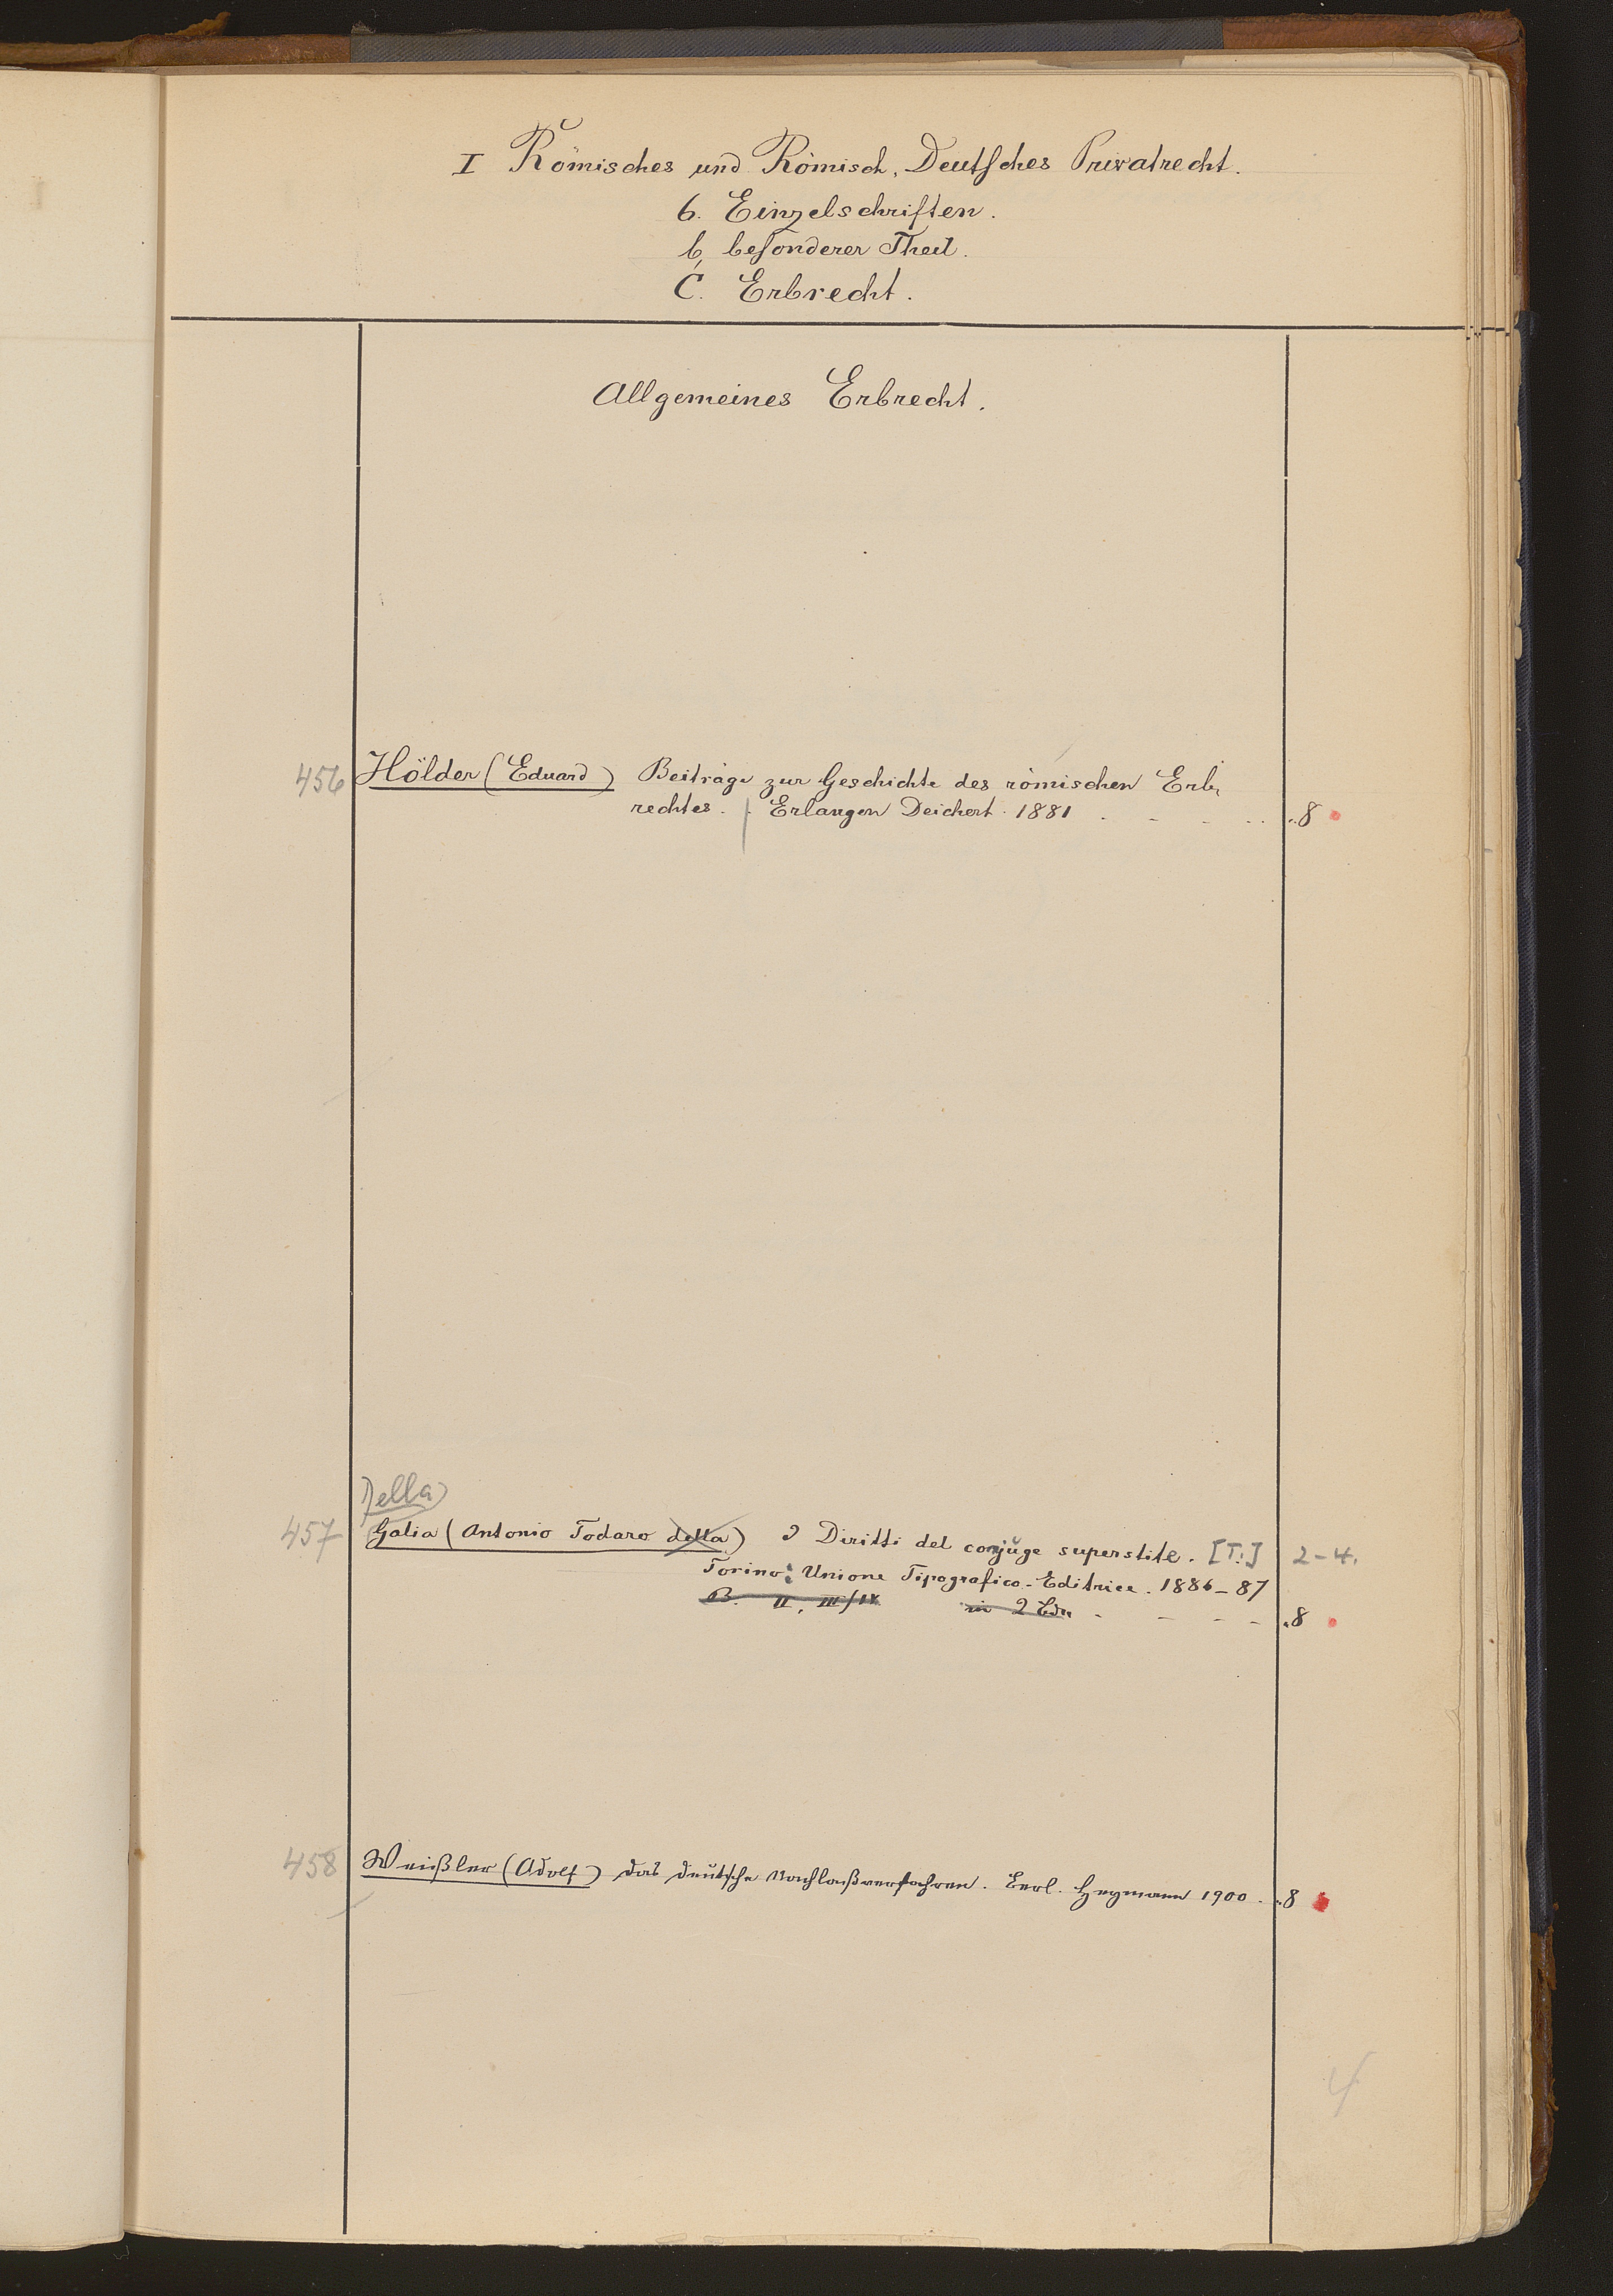 I Römisches und Römisch, Deutsches Privatrecht.
6. Einzelschriften.
b, besonderer Theil.
C. Erbrecht.
Allgemeines Erbrecht.
456 Hölder (Eduard) Beiträge zur Geschichte des römischen Erb-
rechtes. Erlangen Deichert. 1881 8
Della
457 Galia (Antonio Todaro della) I Diritti del conjuge superstite. [T.:] 2-4.
Torino: Unione Tipografico-Editrice. 1886-87
B. II, III/IV in 2 Bdn 8
458 Weißler (Adolf) das deutsche Nachlaßverfahren. Berl. Heymann 1900. 8
4